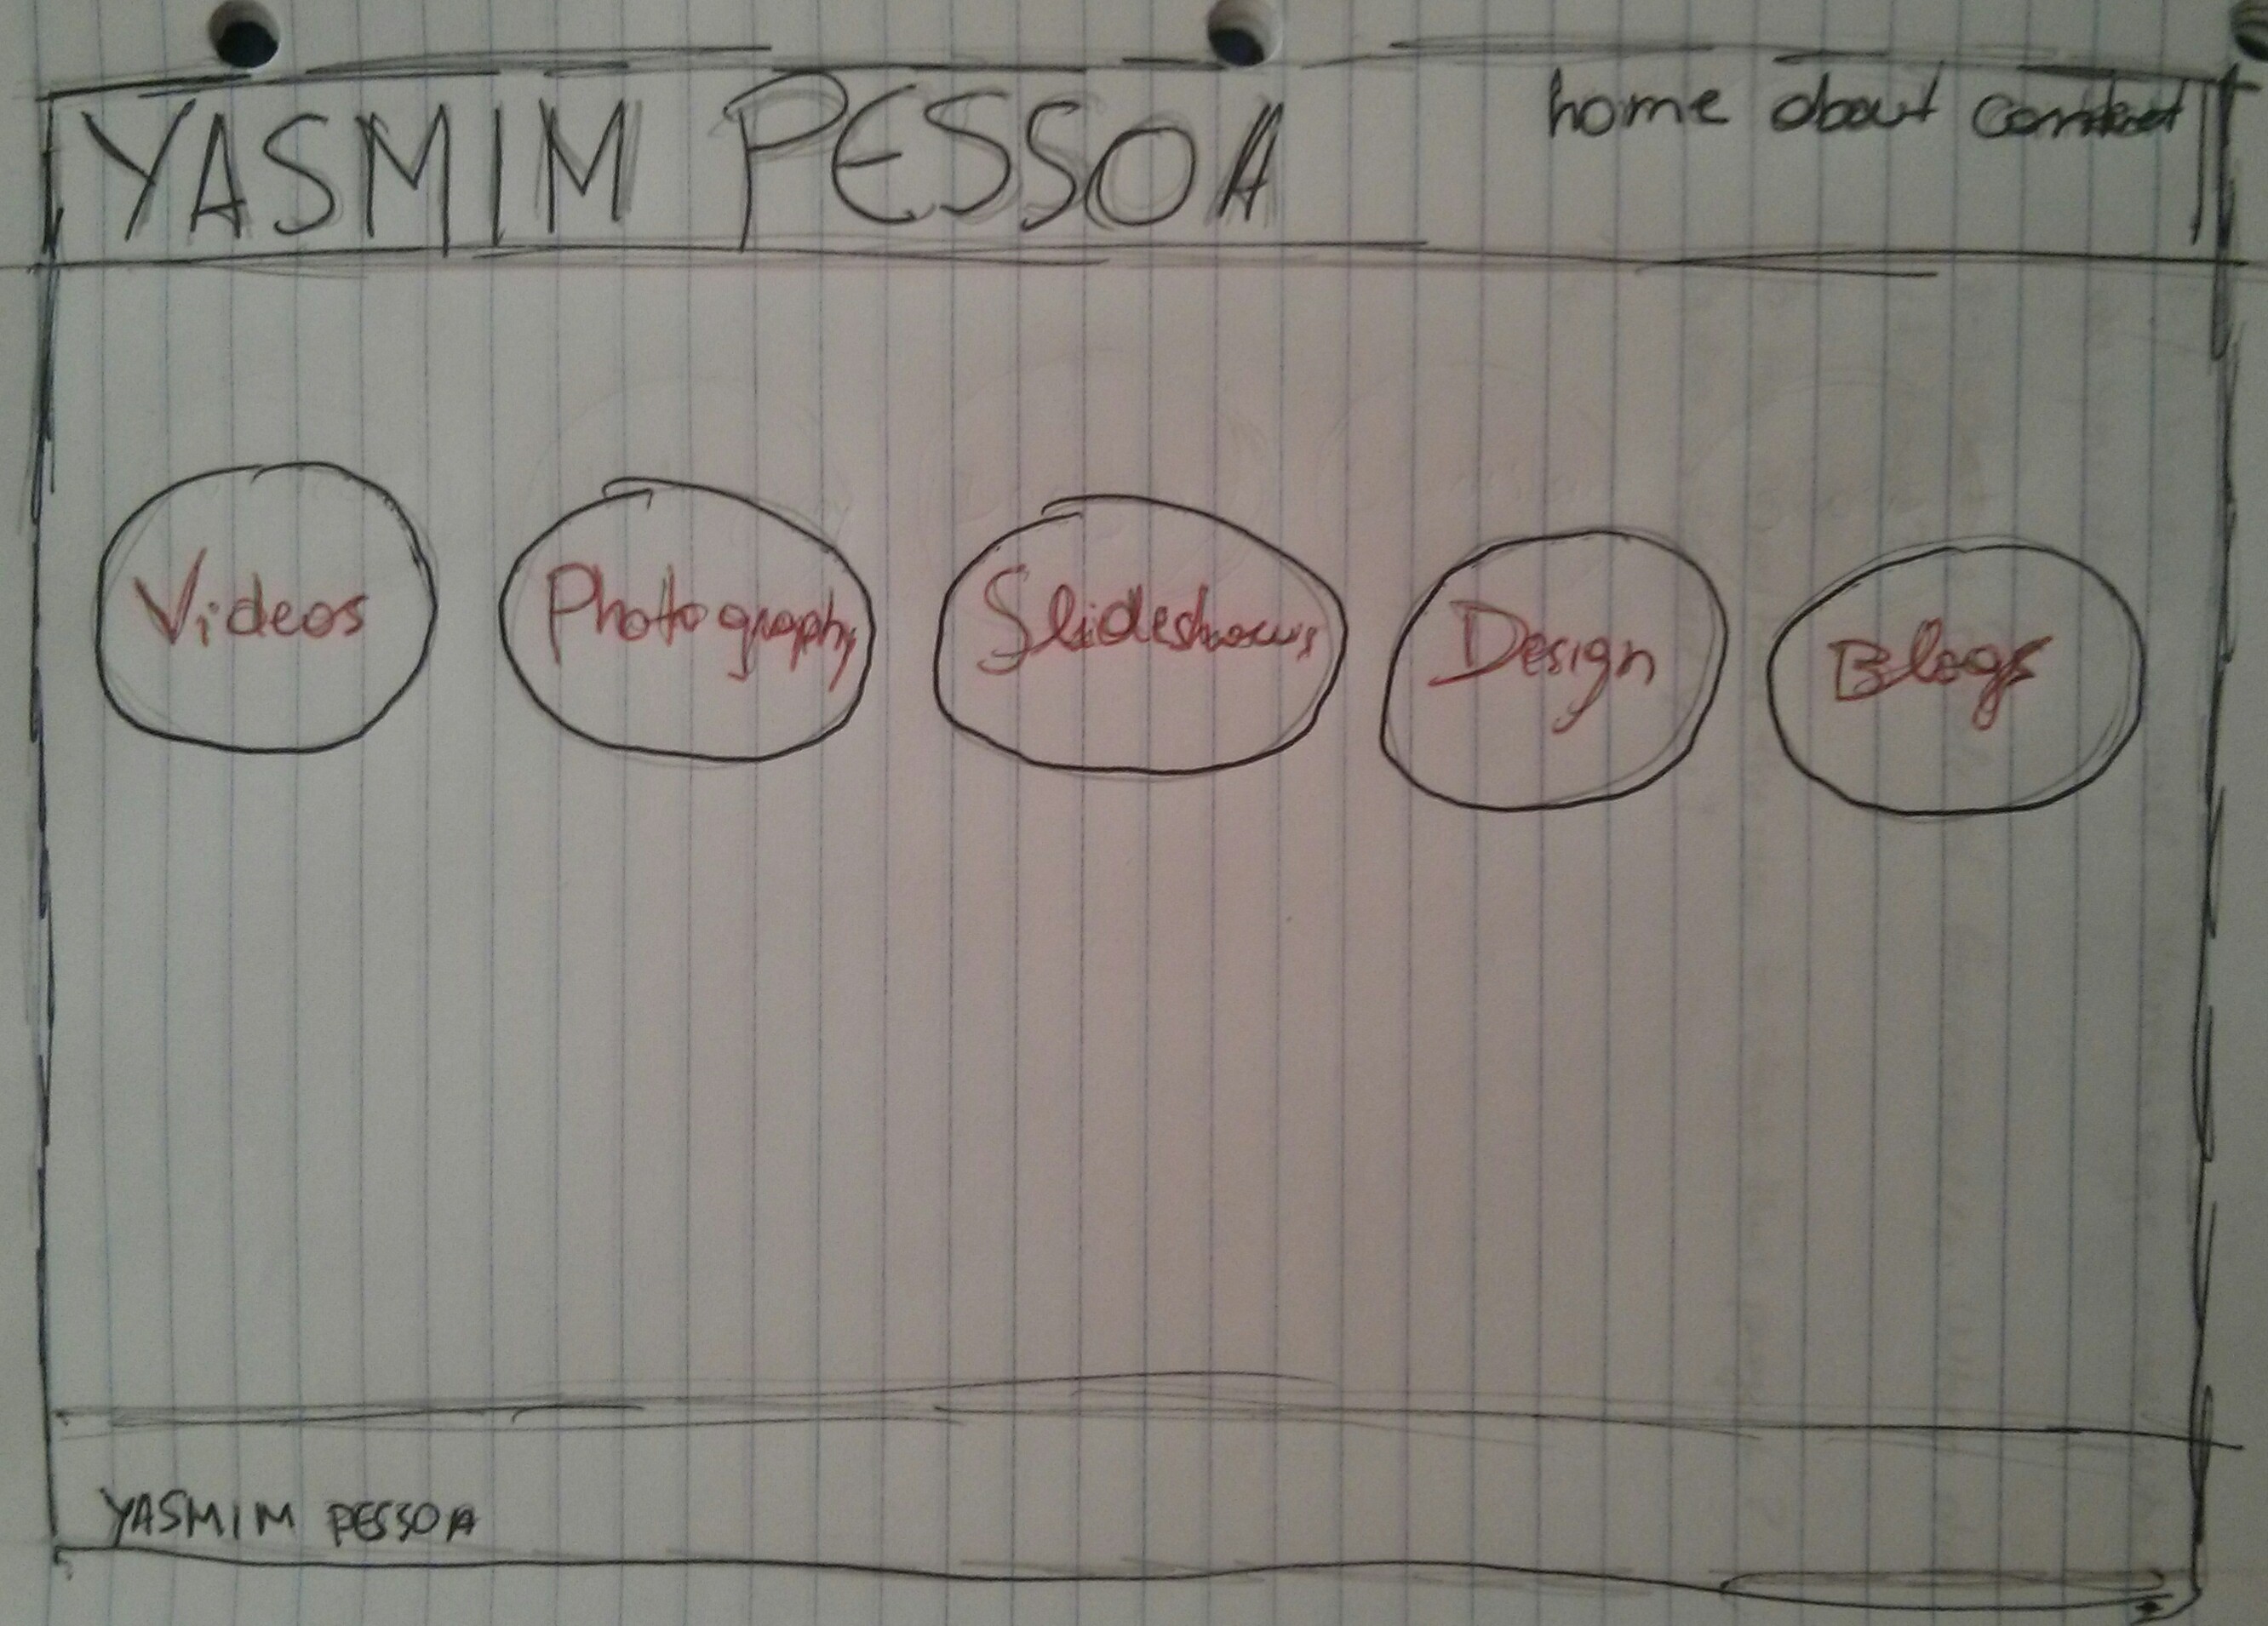 YASMIM PESSOA home about contact
Videos Photography Slideshows Design Blogs
YASMIM PESSOA